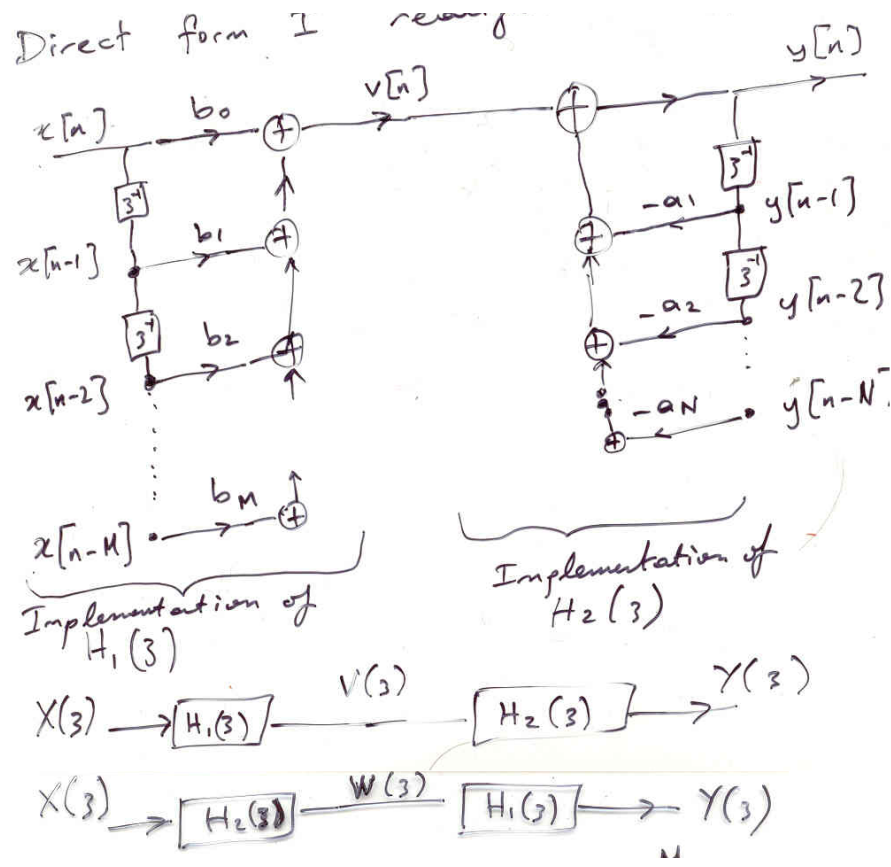 Direct form I
y[n]
x[n] b0 v[n]
z⁻¹ z⁻¹
-a1 y[n-1]
x[n-1] b1
z⁻¹
z⁻¹ -a2 y[n-2]
b2
x[n-2]
-aN y[n-N
bM
x[n-M]
Implementation of
H2(z)
Implementation of
H1(z)
X(z) H1(z) V(z) H2(z) Y(z)
X(z) H2(z) W(z) H1(z) Y(z)
M